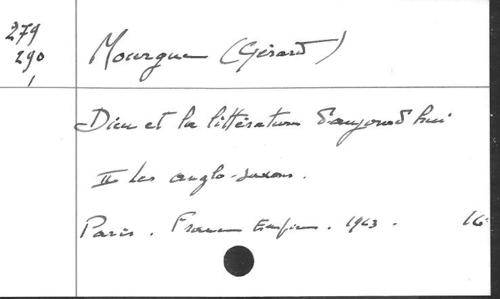 279
290
1
Mourgue (Gérard)
Dieu et la littérature d'aujourd'hui
II Les anglo-saxons.
Paris. France Empire. 1963. 16°